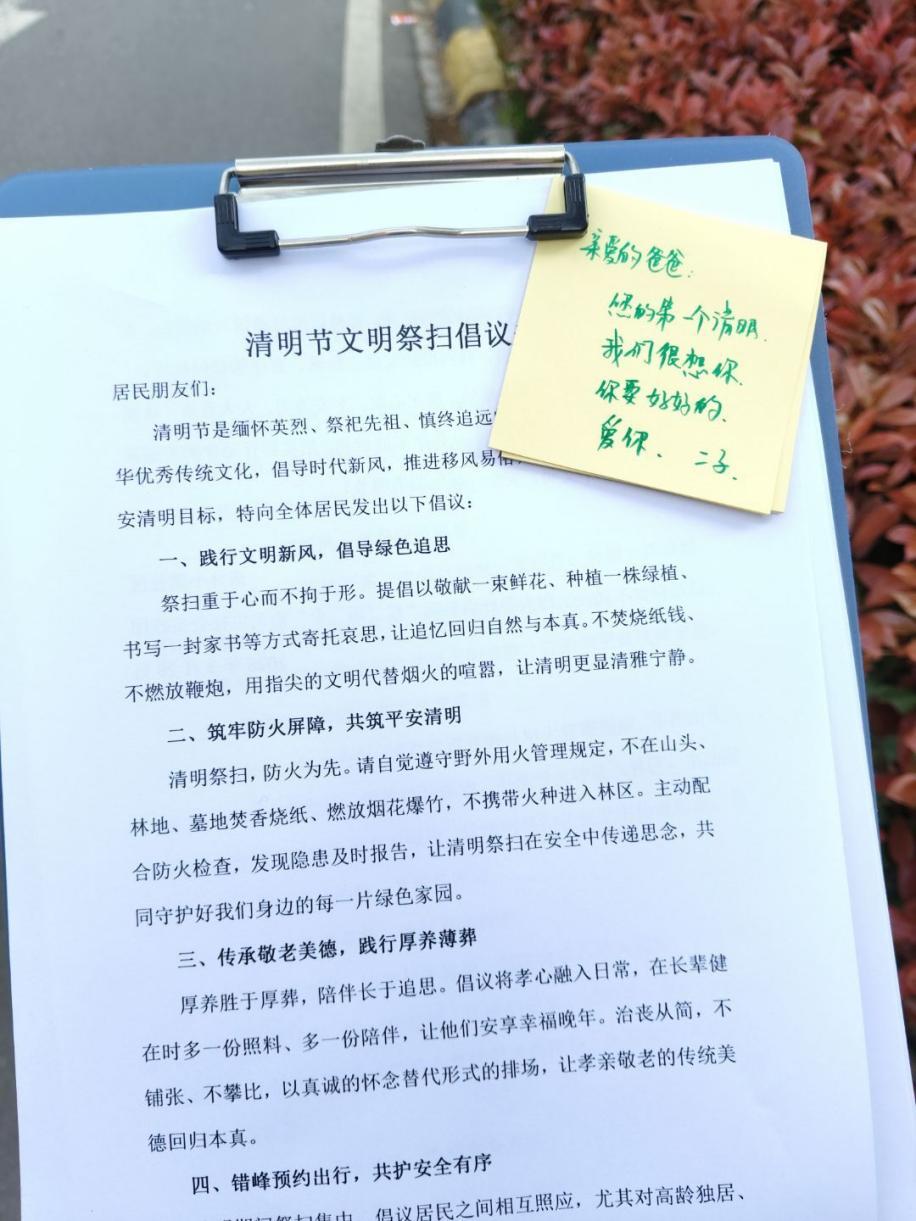 清明节文明祭扫倡议
亲爱的爸爸:
您的第一个清明.
我们很想你.
你要好好的.
爱你、二子.
居民朋友们:
清明节是缅怀英烈、祭祀先祖、慎终追远
华优秀传统文化，倡导时代新风，推进移风易俗
安清明目标，特向全体居民发出以下倡议:
一、践行文明新风，倡导绿色追思
祭扫重于心而不拘于形。提倡以敬献一束鲜花、种植一株绿植、
书写一封家书等方式寄托哀思，让追忆回归自然与本真。不焚烧纸钱、
不燃放鞭炮，用指尖的文明代替烟火的喧嚣，让清明更显清雅宁静。
二、筑牢防火屏障，共筑平安清明
清明祭扫，防火为先。请自觉遵守野外用火管理规定，不在山头、
林地、墓地焚香烧纸、燃放烟花爆竹，不携带火种进入林区。主动配
合防火检查，发现隐患及时报告，让清明祭扫在安全中传递思念，共
同守护好我们身边的每一片绿色家园。
三、传承敬老美德，践行厚养薄葬
厚养胜于厚葬，陪伴长于追思。倡议将孝心融入日常，在长辈健
在时多一份照料、多一份陪伴，让他们安享幸福晚年。治丧从简，不
铺张、不攀比，以真诚的怀念替代形式的排场，让孝亲敬老的传统美
德回归本真。
四、错峰预约出行，共护安全有序
期间祭扫集中，倡议居民之间相互照应，尤其对高龄独居、